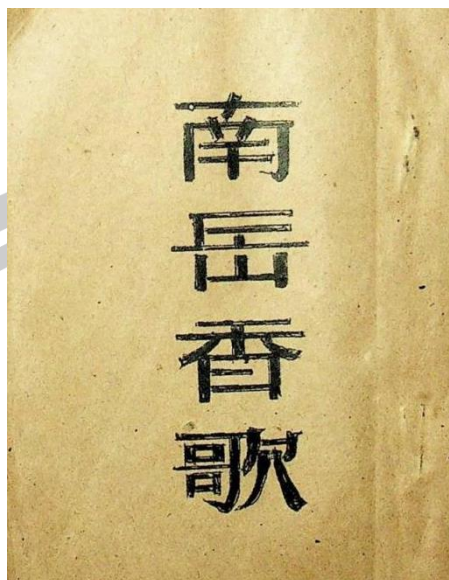 南岳香歌